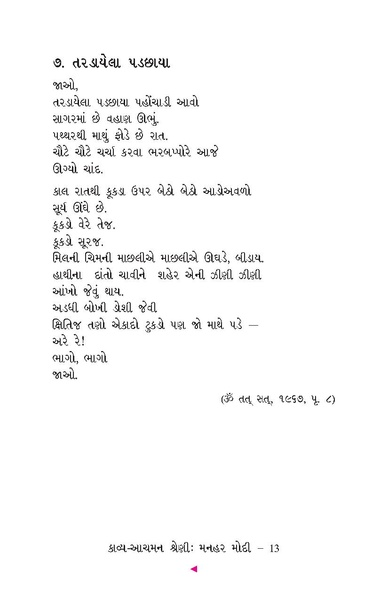 ૭. તરડાયેલા પડછાયા
જાઓ,
તરડાયેલા પડછાયા પહોંચાડી આવો
સાગરમાં છે વહાણ ઊભું.
પથ્થરથી માથું ફોડે છે રાત.
ચૌટે ચૌટે ચર્ચા કરવા ભરબપ્પોરે આજે
ઊગ્યો ચાંદ.
કાલ રાતથી કૂકડા ઉપર બેઠો બેઠો આડોઅવળો
સૂર્ય ઊંઘે છે.
કૂકડો વેરે તેજ.
કૂકડો સૂરજ.
મિલની ચિમની માછલીએ માછલીએ ઊઘડે, બીડાય.
હાથીના દાંતો ચાવીને શહેર એની ઝીણી ઝીણી
આંખો જેવું થાય.
અડધી બોખી ડોશી જેવી
ક્ષિતિજ તણો એકાદો ટુકડો પણ જો માથે પડે –
અરે રે!
ભાગો, ભાગો
જાઓ.
(ૐ તત્ સત્, ૧૯૬૭, પૃ. ૮)
કાવ્ય-આચમન શ્રેણીઃ મનહર મોદી – 13